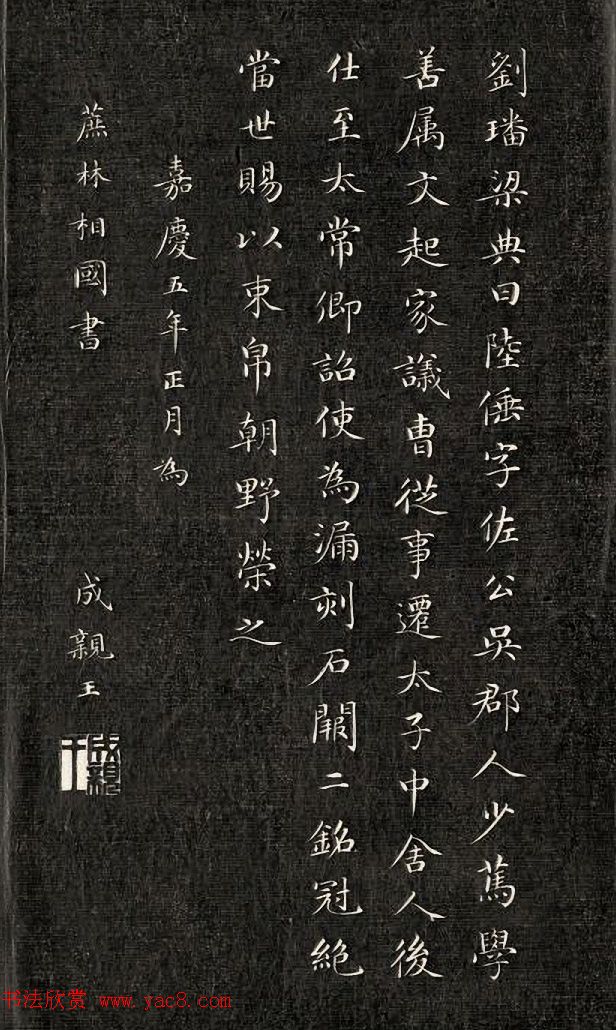 劉璠梁典曰陸倕字佐公吳郡人少篤學
善属文起家議曹従事遷太子中舍人後
仕至太常卿詔使為漏刻石闕二銘冠絶
當世賜以束帛朝野榮之
嘉慶五年正月為
蔗林相國書
成親王
成親王
书法欣赏 www.yac8.com